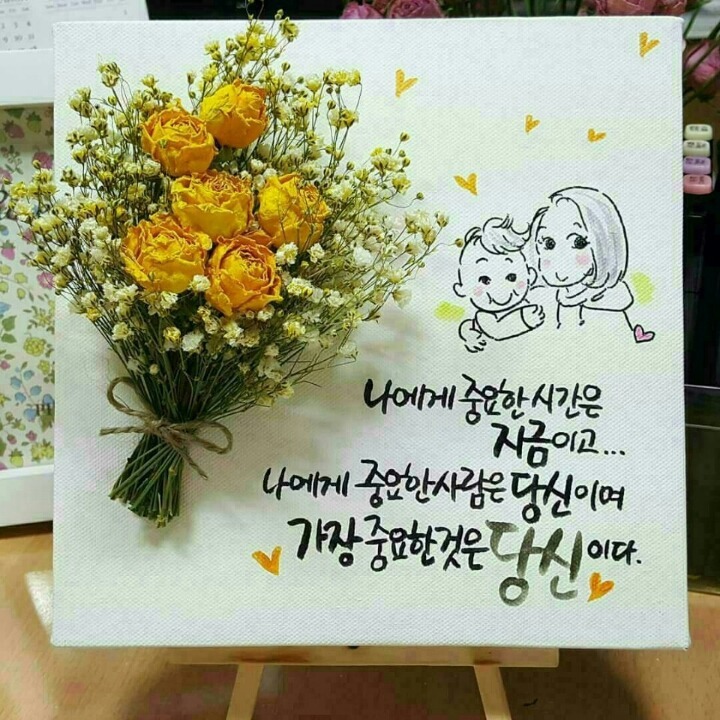 나에게 중요한 시간은
지금이고...
나에게 중요한 사람은 당신이며
가장 중요한것은 당신이다.